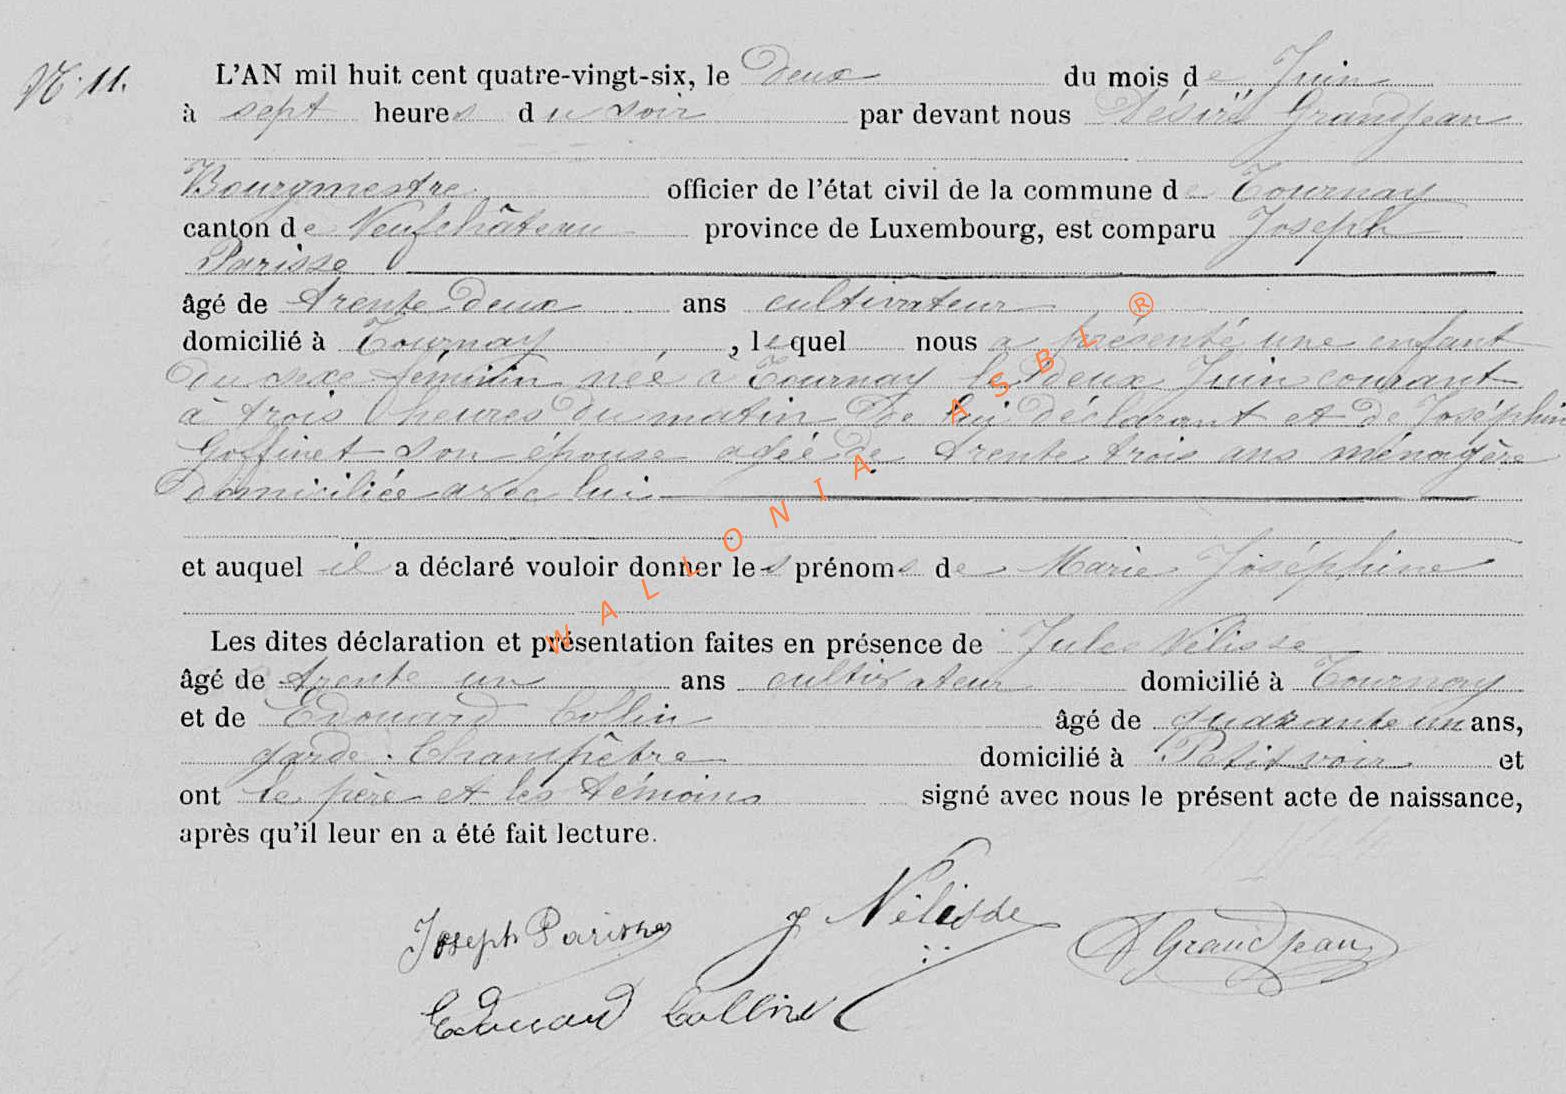 N° 11.
L'AN mil huit cent quatre-vingt-six, le Deux du mois de Juin
à sept heures du soir par devant nous Désiré Grandjean
Bourgmestre officier de l'état civil de la commune de Tournay
canton de Neufchâteau province de Luxembourg, est comparu Joseph
Parisse
âgé de trente deux ans cultivateur
domicilié à Tournay, lequel nous a présenté une enfant
du sexe féminin née à Tournay le deux Juin courant
à trois heures du matin de lui déclarant et de Joséphine
Goffinet son épouse agée de trente trois ans ménagère
domiciliée avec lui
et auquel il a déclaré vouloir donner les prénoms de Marie Joséphine
Les dites déclaration et présentation faites en présence de Jules Nélisse
âgé de trente un ans cultivateur domicilié à Tournay
et de Edouard Collin âgé de quarante un ans,
garde-Champêtre domicilié à Petitvoir et
ont le père et les témoins signé avec nous le présent acte de naissance,
après qu'il leur en a été fait lecture.
Joseph Parisse J Nélisse D Grandjean
Edouard Collin
WALLONIA ASBL ®